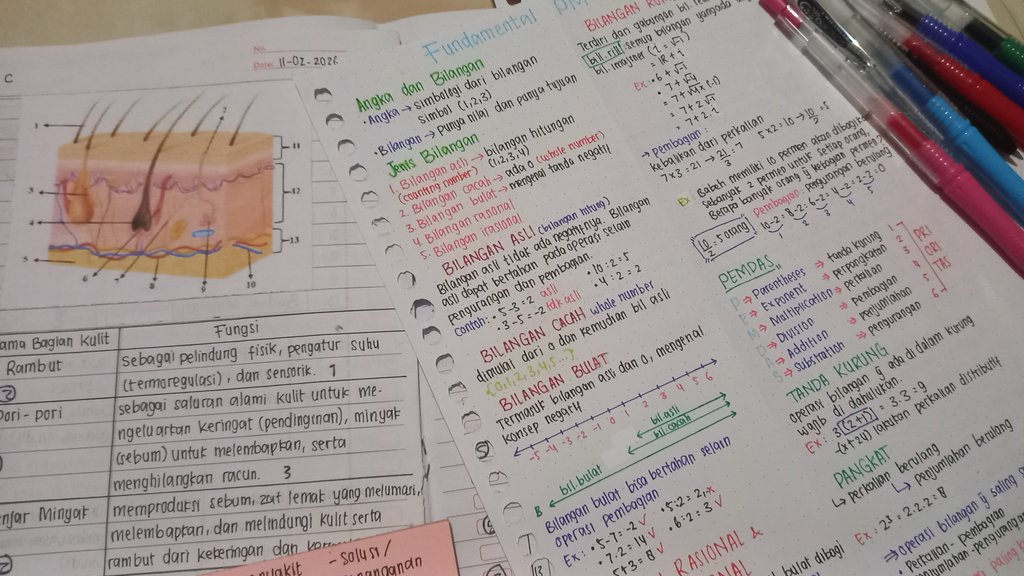 C
No.
Date. 11-02-202
1
2
3
4
5
6
7
8
9
10
11
12
13
ama Bagian Kulit
Fungsi
Rambut
sebagai pelindung fisik, pengatur suhu
(termoregulasi), dan sensorik. 1
Pori - pori
sebagai saluran alami kulit untuk me-
ngeluarkan keringat (pendinginan), minyak
(sebum) untuk melembapkan, serta
menghilangkan racun. 3
enjar Minyak
memproduksi sebum, zat lemak yang melumasi,
melembapkan, dan melindungi kulit serta
rambut dari kekeringan dan
- Solusi /
Fundamental
Angka dan Bilangan
• Angka → simbol dari bilangan
(1,2,3)
• Bilangan → Punya nilai dan punya tujuan
Jenis Bilangan
1. Bilangan asli → bilangan hitungan
(counting number) (1,2,3,4)
2. Bilangan cacah → ada 0 (whole number)
3. Bilangan bulat → mengenal tanda negatif
4. Bilangan rasional
5. Bilangan irasional
BILANGAN ASLI (bilangan hitung)
Bilangan asli tidak ada negatifnya. Bilangan
asli dapat bertahan pada operasi selain
pengurangan dan pembagian.
Contoh: • 5-3 = 2 asli • 10 : 2 = 5
• 3-5 = -2 tdk asli • 4 : 2 = 2
BILANGAN CACAH whole number
dimulai dari 0 dan kemudian bil asli
{0,1,2,3,4,5...}
BILANGAN BULAT
Termasuk bilangan asli dan 0, mengenal
konsep negatif
-5 -4 -3 -2 -1 0 1 2 3 4 5 6
bil.asli
bil.cacah
B bil.bulat
Bilangan bulat bisa bertahan selain
operasi pembagian
Ex: • 5-7 = -2 √ • 5:2 = 2, x
• 7.2 = 14 √ • 6:2 = 3 √
5+3 = 8 √
RASIONAL &
BILANGAN
Terdiri dari gabungan bil
bil riil semua bilangan
bil majiner (i = √-1)
Ex:
→ pembagian :
Kebalikan dari perkalian
7×3 = 21 → 21/3 = 7
5×2 = 10 → 10/2 = 5
Ex: Babeh memiliki 10 permen akan dibagikan
sebanyak 2 permen untuk setiap orang,
Berapa banyak orang yg kebagian permen?
Pembagian pengurangan berulang
10/2 = 5 orang
10-2 = 8-2 = 6-2 = 4-2 = 2-2 = 0
1 2 3 4 5
PEMDAS
P → Parentheses → tanda kurung 1
E → Exponent → perpangkatan 2
M → Multiplication → perkalian 3
D → Division → pembagian 4
A → Addition → penjumlahan 5
S → Substration → pengurangan 6
DARI
KIRI
TAS
TANDA KURUNG
operasi bilangan yg ada di dalam kurung
wajib di dahulukan.
Ex: 3(2+1) = 3.3 = 9
(a+2a) lakukan perkalian distributif
PANGKAT
↳ perkalian berulang
↳ penjumlahan berulang
Ex: 2³ = 2.2.2 = 8
⇒ operasi bilangan yg saling
• Perkalian - Pembagian